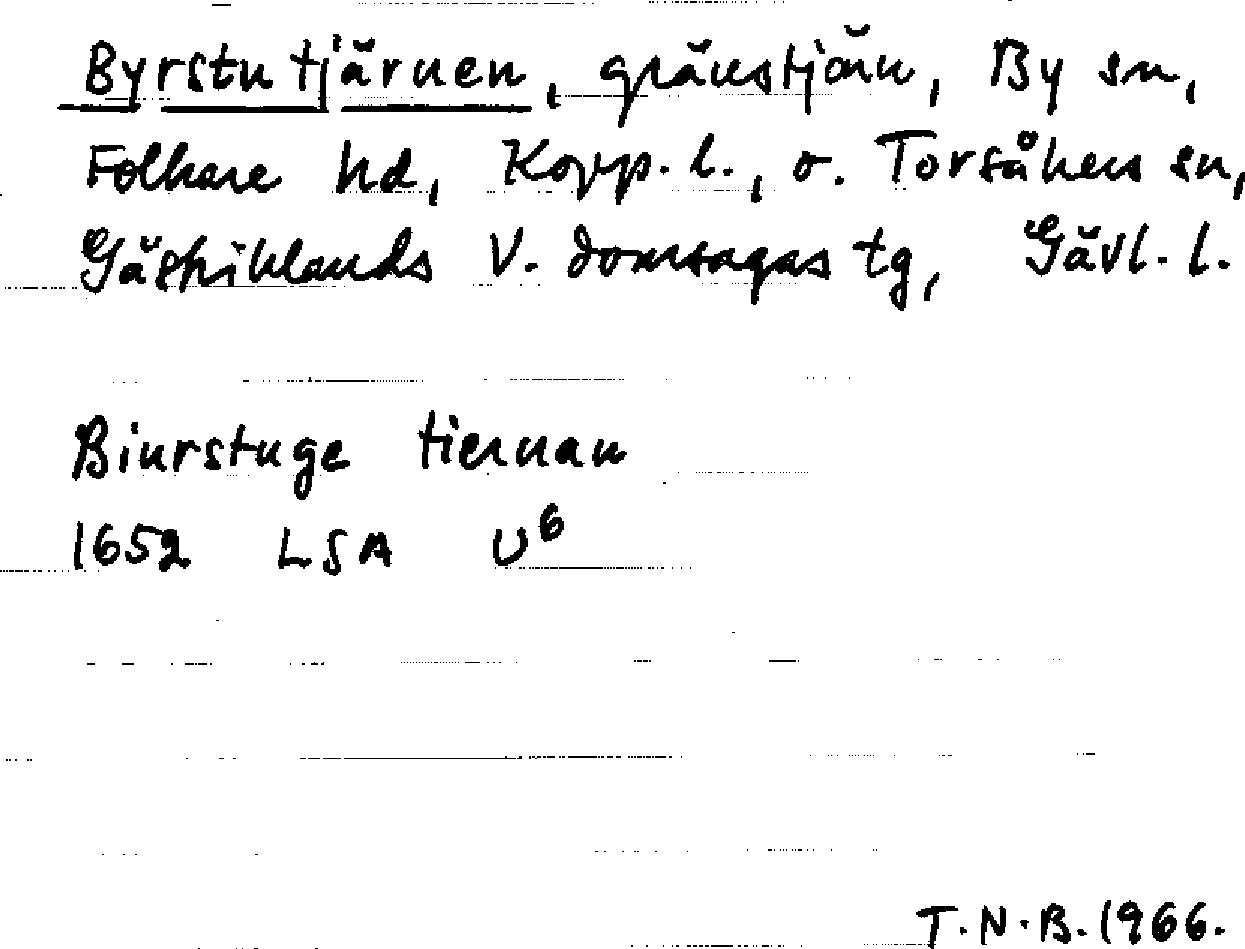 Byrstutjärnen, gränstjärn, By sn,
Folkare hd, Kopp. l., o. Torsåkers sn,
Gästriklands V. domsagas tg, Gävl. l.
Biurstuge tiernan
1652 LSA U6
T.N.B. 1966.